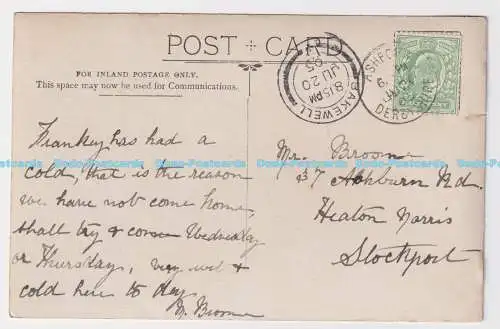 POST CARD
FOR INLAND POSTAGE ONLY.
This space may now be used for Communications.
BAKEWELL
8 15 PM
JU 20
05
ASHFORD
DERBYSHIRE
Frankey has had a
cold, that is the reason
we have not come home,
shall try & come Wednesday
or Thursday, very wet &
cold here to day
M. Broome
Mr. Broome
37 Ashburn Rd.
Heaton Norris
Stockport